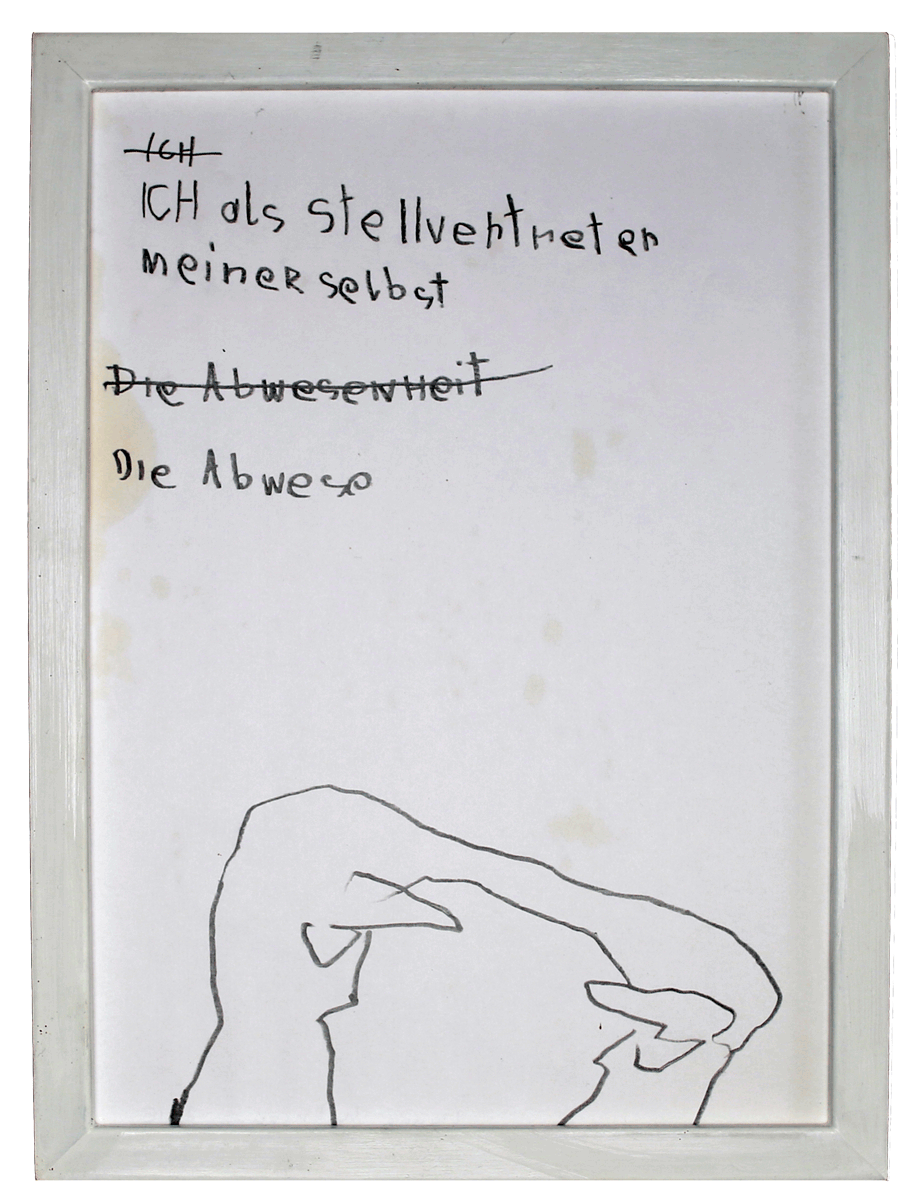 ICH
ICH als Stellvertreter
meiner selbst
Die Abwesenheit
Die Abwese